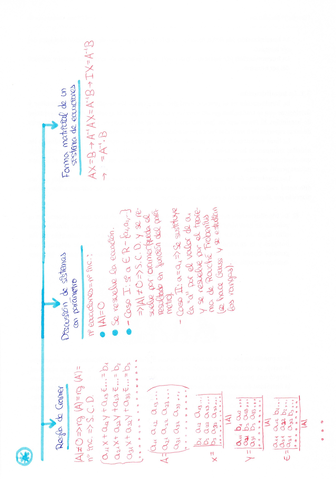 Regla de Cramer
|A|≠0 ⇒ rg (A) = rg (A*) =
nº Inc. ⇒ S.C.D.
a₁₁x + a₁₂y + a₁₃z... = b₁
a₂₁x + a₂₂y + a₂₃z... = b₂
a₃₁x + a₃₂y + a₃₃z... = b₃
A = ( a₁₁ a₁₂ a₁₃ ...
a₂₁ a₂₂ a₂₃ ...
a₃₁ a₃₂ a₃₃ ... )
x = | b₁ a₁₂ a₁₃ ...
b₂ a₂₂ a₂₃ ...
b₃ a₃₂ a₃₃ ... |
|A|
y = | a₁₁ b₁ a₁₃ ...
a₂₁ b₂ a₂₃ ...
a₃₁ b₃ a₃₃ ... |
|A|
z = | a₁₁ a₁₂ b₁ ...
a₂₁ a₂₂ b₂ ...
a₃₁ a₃₂ b₃ ... |
|A|
Discusión de sistemas
con parámetro
nº ecuaciones = nº Inc.:
• |A|=0
• Se resuelve la ecuación
• - Caso I: si a ∈ R-{a₁, a₂...}
⇒ |A|≠0 ⇒ S.C.D. Y se re-
suelve por Cramer (queda el
resultado en función del pará-
metro)
- Caso II: a=a₁ ⇒ Se sustituye
la "a" por el valor de a₁
y se resuelve por el teore-
ma de Rouché Frobenius
(se hace Gauss y se estudian
los rangos).
Forma matricial de un
sistema de ecuaciones
AX=B → A⁻¹AX=A⁻¹B → IX=A⁻¹B
→ = A⁻¹·B